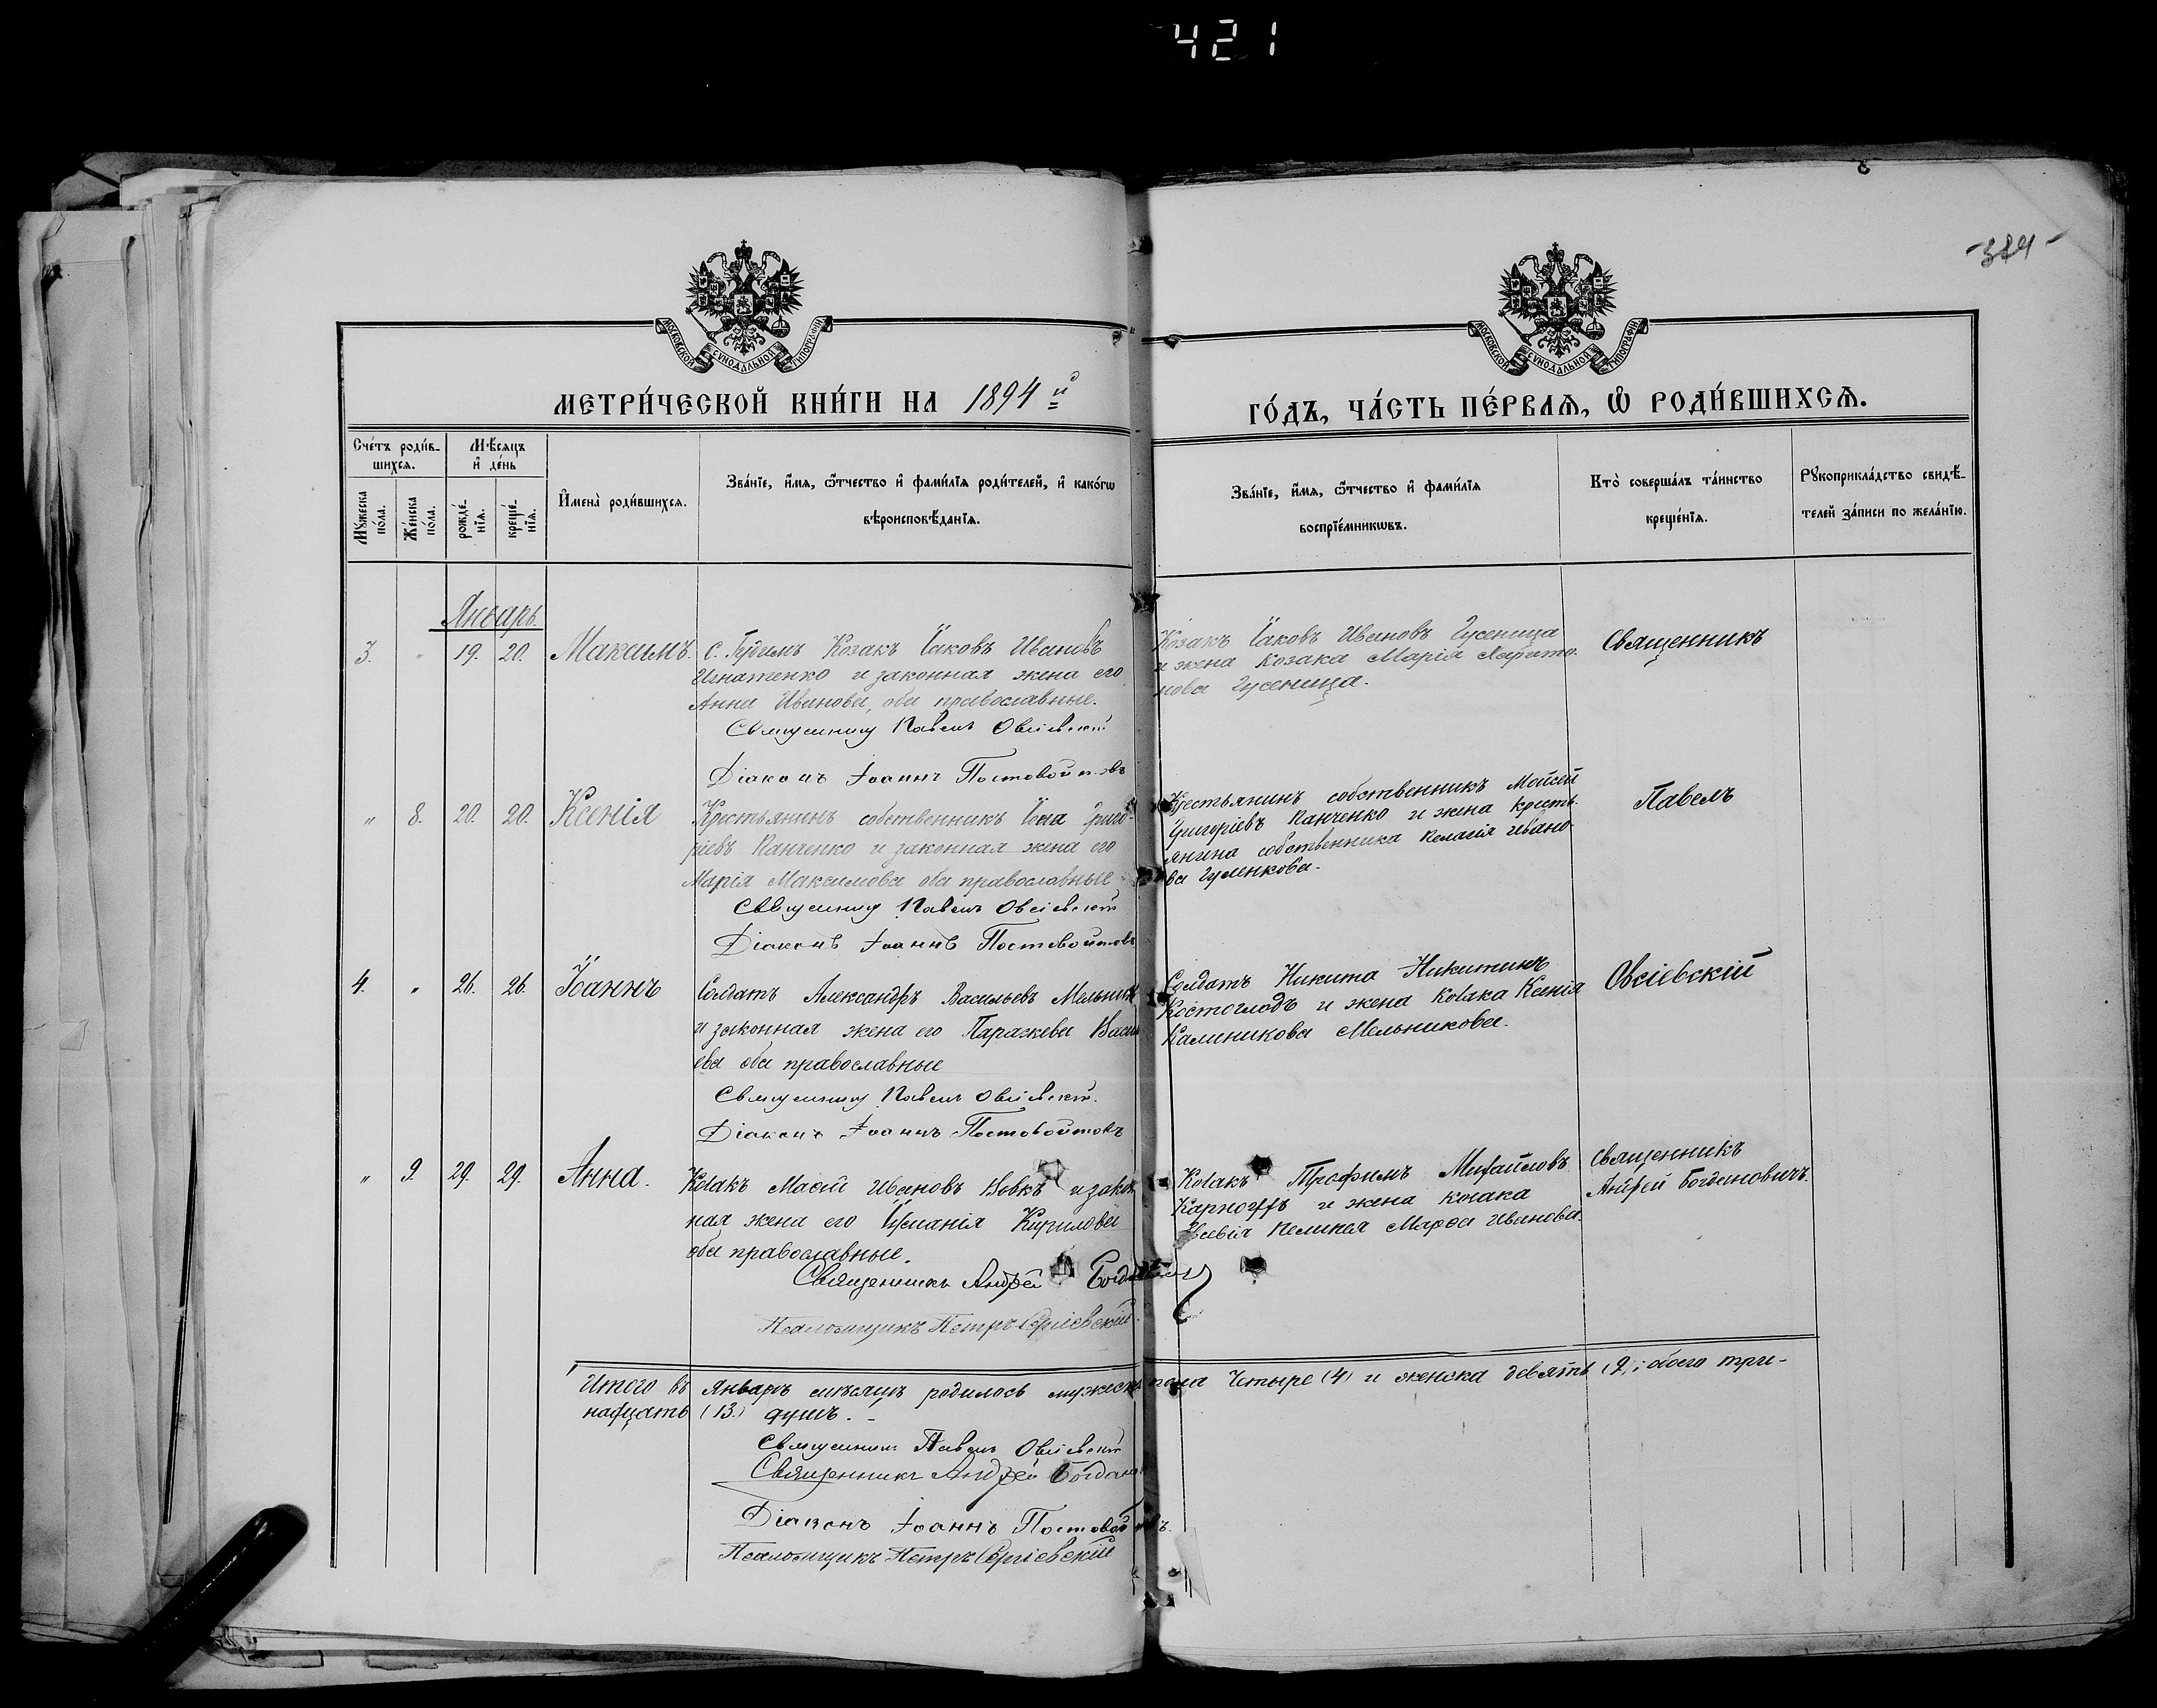 421
-384-
МОСКОВСКОЙ СУНОДАЛЬНОЙ ТИПОГРАФІИ
МОСКОВСКОЙ СУНОДАЛЬНОЙ ТИПОГРАФІИ
МЕТРИ́ЧЕСКОЙ КНИ́ГИ НА 1894 й
ГО́ДЪ, ЧА́СТЬ ПЕ́РВАѦ, Ѡ РОДИ́ВШИХСѦ.
Сче́тъ роди́в-
шихсѧ.
Мѣ́сѧцъ
и де́нь
Мꙋ́жеска
по́ла.
Же́нска
по́ла.
рожде́-
нїѧ.
креще́-
нїѧ.
Имена̀ роди́вшихсѧ.
Зва́нїе, и́мѧ, ѻ́тчество и фами́лїѧ роди́телей, и како́гѡ
вѣроисповѣ́данїѧ.
Зва́нїе, и́мѧ, ѻ́тчество и фами́лїѧ
воспрїе́мникѡвъ.
Кто̀ соверша́лъ та́инство
креще́нїѧ.
Рꙋкоприкла́дство свидѣ́-
телей за́писи по жела́нїю.
Январь.
3. " 19. 20. Максимъ. с. Козакъ Іаковъ Ивановъ
Игнатенко и законная жена его
Анна Иванова, оба православные.
Священникъ Павелъ Овсіевскій
Діаконъ Іоаннъ Постовойтовъ
Козакъ Іаковъ Ивановъ Гусеница
и жена козака Марія
нова Гусеница.
Священникъ
" 8. 20. 20. Ксенія Крестьянинъ собственникъ Іона Григо-
ріевъ Панченко и законная жена его
Марія Максимова оба православные
Священникъ Павелъ Овсіевскій
Діаконъ Іоаннъ Постовойтовъ
Крестьянинъ собственникъ Моисей
Григоріевъ Панченко и жена кресть-
янина собственника Пелагія Ивано-
ва Гуленкова.
Павелъ
4. " 26. 26. Іоаннъ Солдатъ Александръ Васильевъ Мельникъ
и законная жена его Параскева Васил
ева оба православные
Священникъ Павелъ Овсіевскій.
Діаконъ Іоаннъ Постовойтовъ
Солдатъ Никита Никитинъ
Костогладъ и жена козака Ксенія
Калиникова Мельникова.
Овсіевскій
" 9. 29. 29. Анна. Козакъ Ивановъ Вовкъ и закон
ная жена его Кирилова
оба православные.
Священникъ Андрей Богданович
Псаломщикъ Петръ Сергіевскій.
Козакъ Трофимъ Михайловъ
и жена козака
Марѳа Иванова.
Священникъ
Андрей Богдановичъ.
Итого въ Январѣ мѣсяцѣ родилось мужеска пола Четыре (4) и женска девять (9); обоего три-
надцать (13.) душъ. -
Священникъ Павелъ Овсіевскій
Священникъ Андрей Богданович
Діаконъ Іоаннъ Постовойтовъ.
Псаломщикъ Петръ Сергіевскій